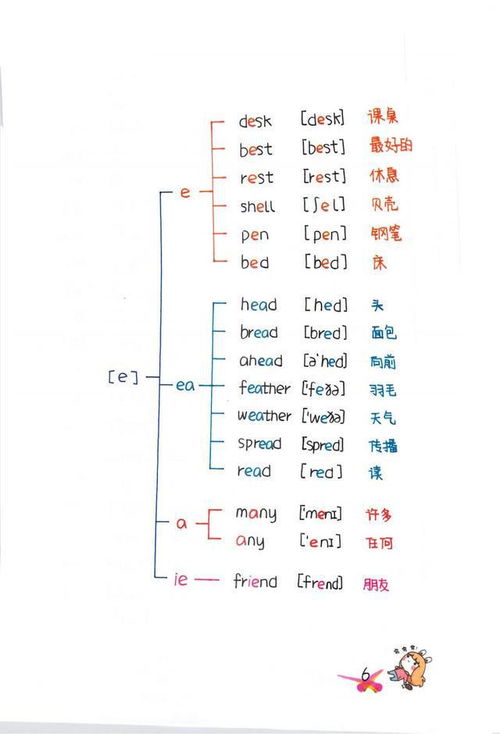 [e]
e
desk [desk] 课桌
best [best] 最好的
rest [rest] 休息
shell [ʃel] 贝壳
pen [pen] 钢笔
bed [bed] 床
ea
head [hed] 头
bread [bred] 面包
ahead [ə'hed] 向前
feather ['feðə] 羽毛
weather ['weðə] 天气
spread [spred] 传播
read [red] 读
a
many ['menɪ] 许多
any ['enɪ] 任何
ie
friend [frend] 朋友
6